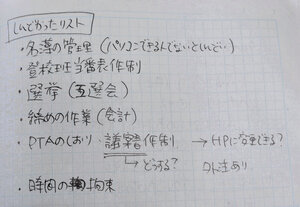 しんどかったリスト
・名簿の管理(パソコンできる人でないとしんどい)
・登校班当番表作制
・選挙(互選会)
・締めの作業(会計)
・PTAのしおり・議案書作制 → HPに変更できる?
→どうする? 外注あり
・時間の拘束